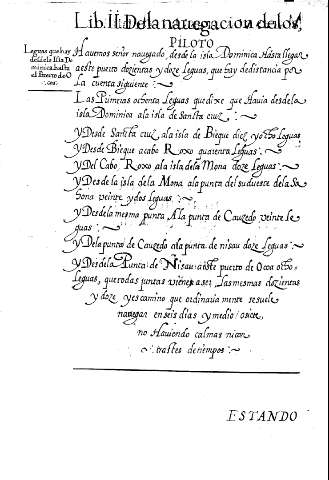 Lib. II. De la nauegacion de los,
PILOTO
Leguas que hay
desde la Isla Do
minica hasta
el Puerto de O
coa.
Hauemos señor nauegado, desde la isla Dominica Hasta llegar
a este puerto dozientas y doze Leguas, que hay de distancia por
La cuenta siguiente
Las Primeras ochenta Leguas que dixe que Hauia desde la
isla Dominica a la isla de Sancta cruz
y Desde Sancta cruz, a la isla de Bieque diez y ocho Leguas
y Desde Bieque a cabo Roxo quarenta Leguas
y Del Cabo Roxo a la isla de la Mona doze Leguas
y Desde la isla de la Mona a la punta del sudueste de la Sa
hona veinte y dos leguas
y Desde la mesma punta A la punta de Cauzedo veinte Le
guas
y De la punta de Cauzedo a la punta de nisau doze Leguas
y Desde la Punta de Nisau a este puerto de Ocoa ocho
Leguas, que todas juntas vienen a ser Las mesmas dozientas
y doze y es camino que ordinaria mente se suele
nauegar en seis dias y medio o siete,
no Hauiendo calmas ni con
trastes de tiempos
ESTANDO